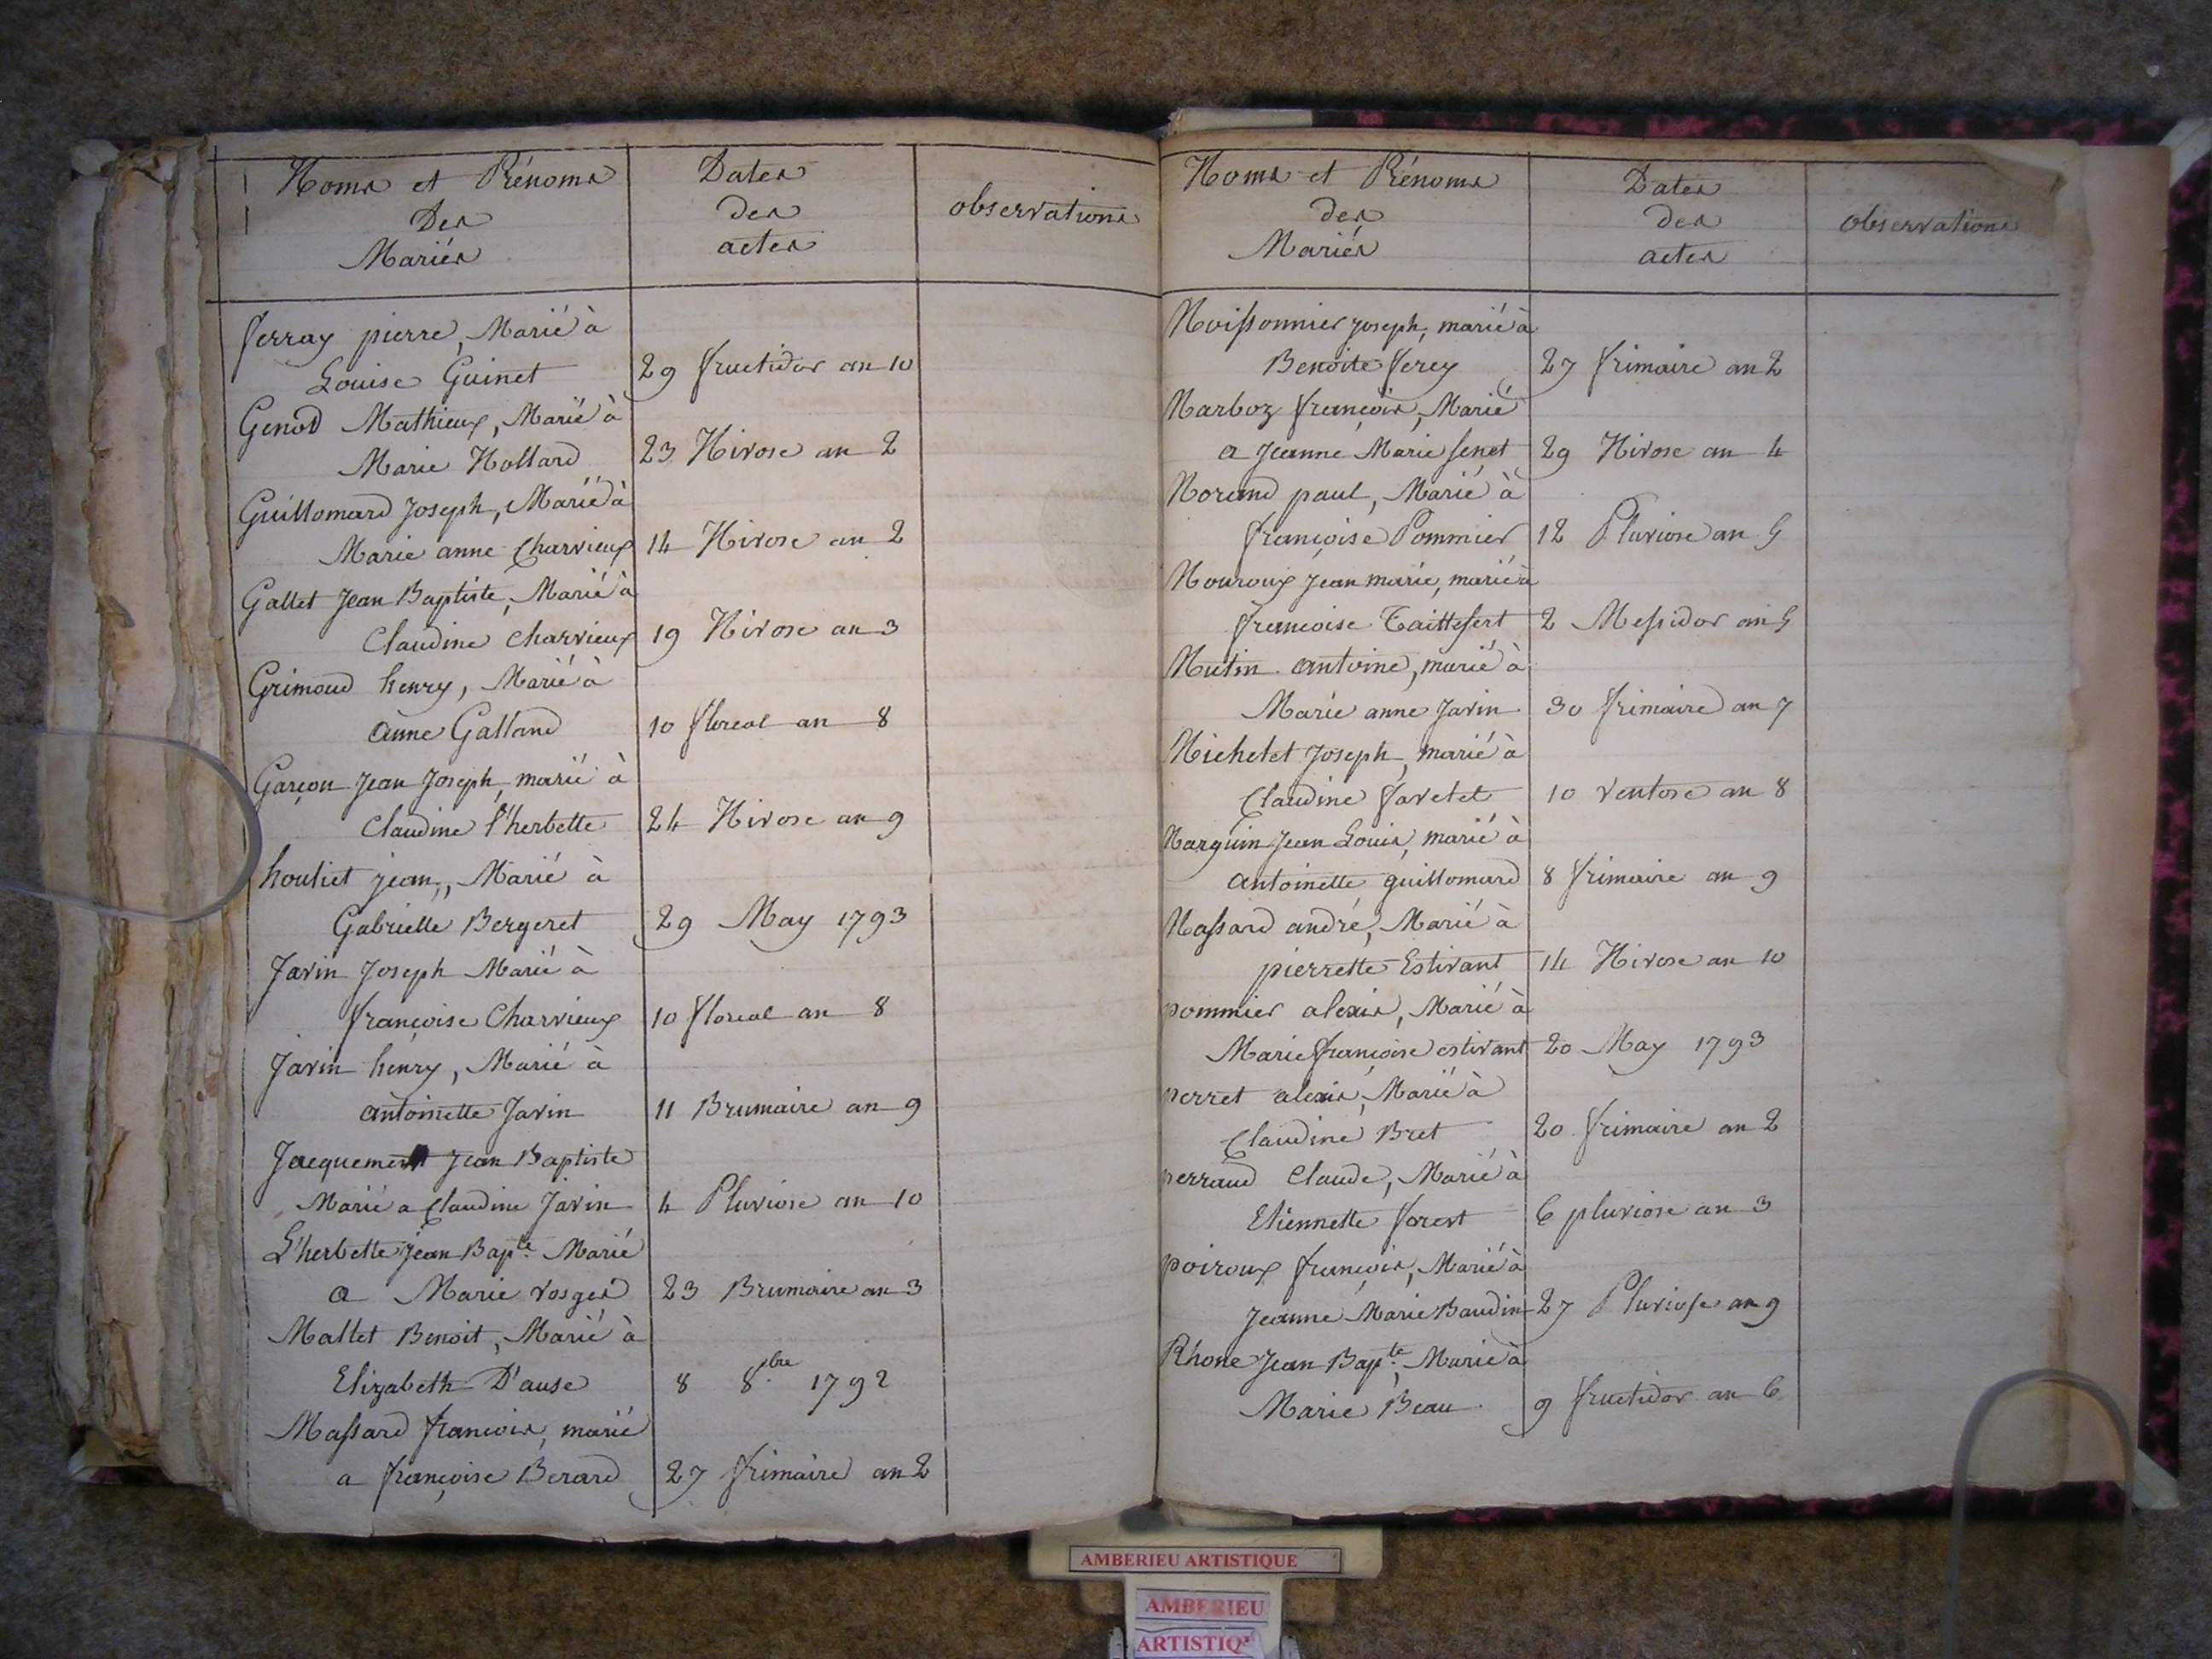 Noms et Prénoms
Des
Mariés
Dates
des
actes
observations
ferray pierre, Marié à
Louise Guinet 29 fructidor an 10
Genod Mathieux, Marié à
Marie Hollard 23 Nivose an 2
Guillomard Joseph, Marié à
Marie anne Charvieux 14 Nivose an 2
Gallet Jean Baptiste, Marié à
Claudine Charvieux 19 Nivose an 3
Grimoud henry, Marié à
anne Galland 10 floreal an 8
Garçon Jean Joseph, marié à
Claudine l'herbette 24 Nivose an 9
houliet jean, Marié à
Gabrielle Bergeret 29 May 1793
Javin Joseph Marié à
françoise Charvieux 10 floreal an 8
Javin henry, Marié à
antoinette Javin 11 Brumaire an 9
Jacquement Jean Baptiste
Marié a Claudine Javin 4 Pluviose an 10
L'herbette Jean Bapte. Marié
a Marie vosges 23 Brumaire an 3
Mallet Benoit, Marié à
Elizabeth D'ause 8 8bre 1792
Massard francois, marié
a françoise Berard 27 frimaire an 2
Noms et Prénoms
des
Mariés
Dates
des
actes
observations
Moissonnier Joseph, marié à
Benoite ferey 27 frimaire an 2
Marboz françois, Marié
a Jeanne Marie fenet 29 Nivose an 4
Morand paul, Marié à
françoise Pommier 12 Pluviose an 5
Mouroux Jean marie, marié à
francoise Taittefert 2 Messidor an 5
Mutin antoine, marié à
Marie anne Javin 30 frimaire an 7
Michelet Joseph, marié à
Claudine favelet 10 ventose an 8
Marguin Jean Louis, marié à
antoinette guillomard 8 frimaire an 9
Massard andré, Marié à
pierrette Estivant 14 Nivose an 10
pommier alexis, Marié à
Marie françoise estivant 20 May 1793
perret alexis, Marié à
Claudine Bret 20 frimaire an 2
perraud Claude, Marié à
Etiennette forest 6 pluviose an 3
poiroux françois, Marié à
Jeanne Marie Baudin 27 Pluviose an 9
Rhone Jean Bapte. Marié à
Marie Beau 9 fructidor an 6
AMBERIEU ARTISTIQUE
AMBERIEU
ARTISTIQ